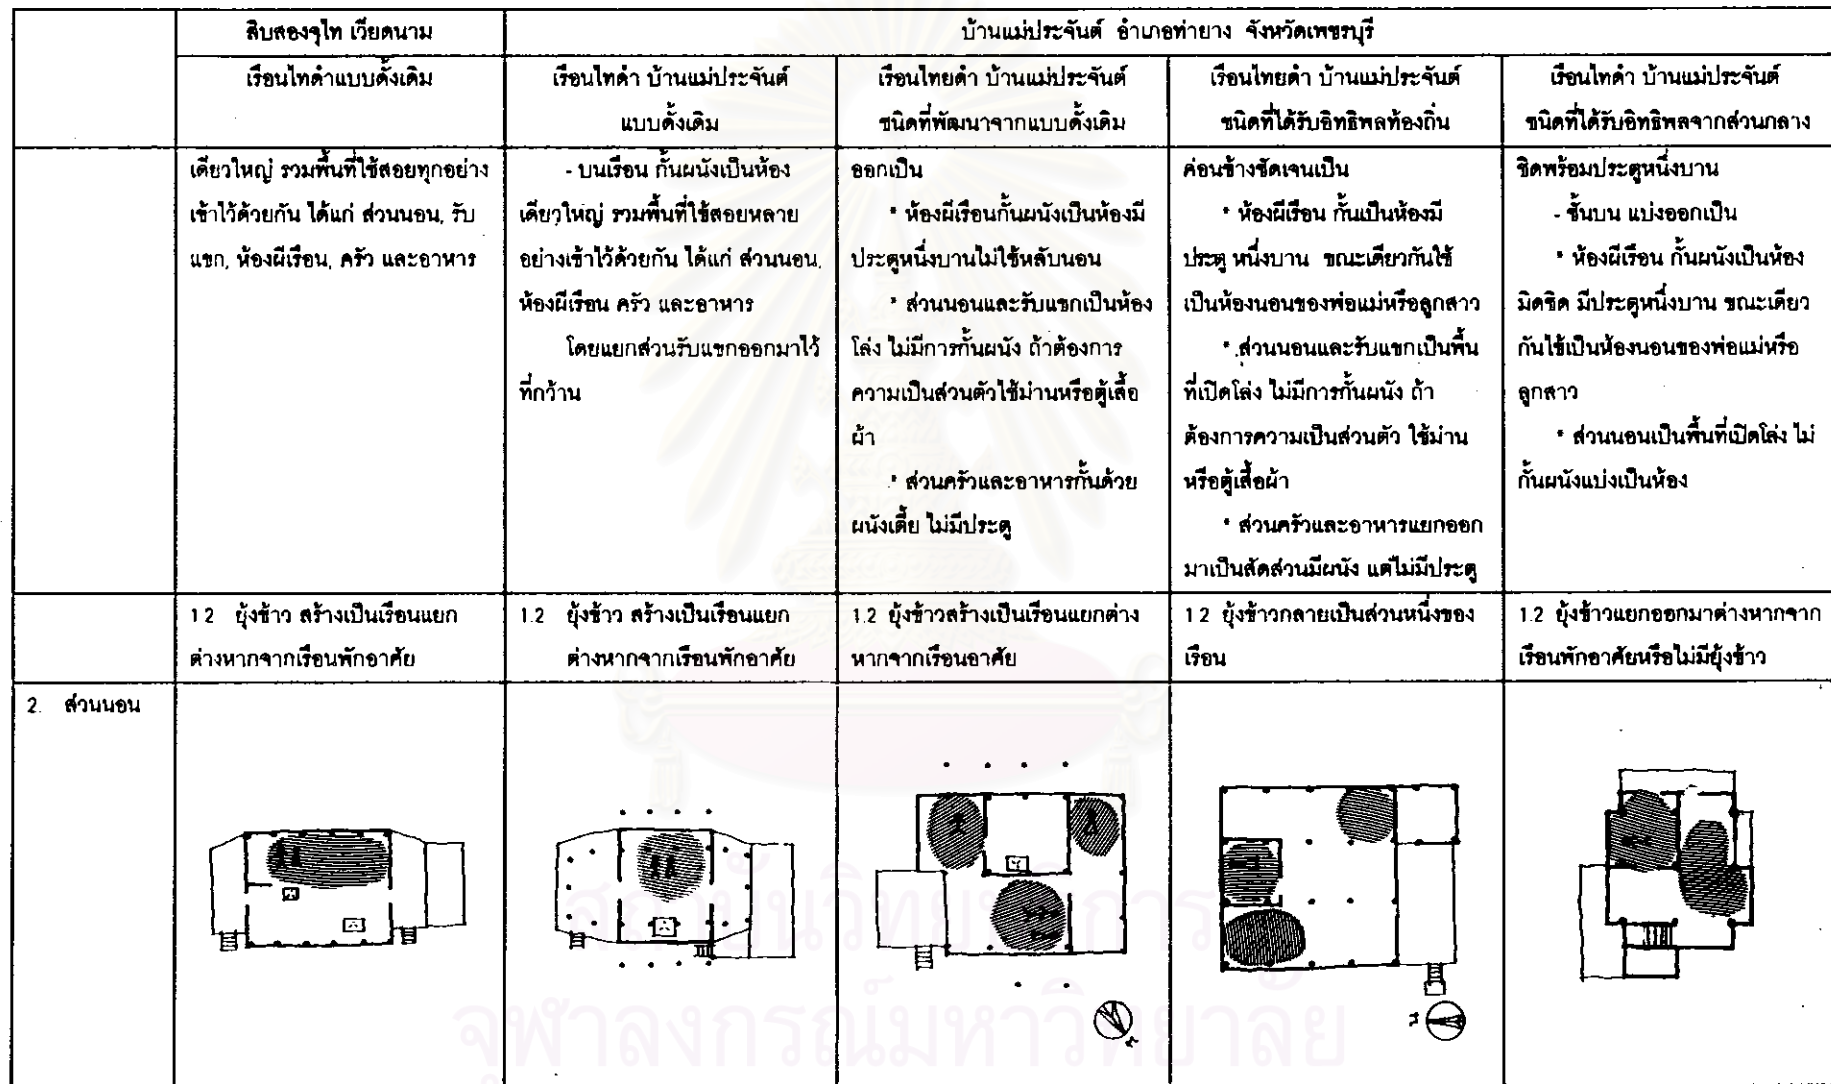 สิบสองจุไท เวียดนาม
บ้านแม่ประจันต์ อำเภอท่ายาง จังหวัดเพชรบุรี
เรือนไทดำแบบดั้งเดิม
เรือนไทดำ บ้านแม่ประจันต์
แบบดั้งเดิม
เรือนไทยดำ บ้านแม่ประจันต์
ชนิดที่พัฒนาจากแบบดั้งเดิม
เรือนไทยดำ บ้านแม่ประจันต์
ชนิดที่ได้รับอิทธิพลท้องถิ่น
เรือนไทดำ บ้านแม่ประจันต์
ชนิดที่ได้รับอิทธิพลจากส่วนกลาง
เดียวใหญ่ รวมพื้นที่ใช้สอยทุกอย่าง
เข้าไว้ด้วยกัน ได้แก่ ส่วนนอน, รับ
แขก, ห้องผีเรือน, ครัว และอาหาร
- บนเรือน กั้นผนังเป็นห้อง
เดียวใหญ่ รวมพื้นที่ใช้สอยหลาย
อย่างเข้าไว้ด้วยกัน ได้แก่ ส่วนนอน,
ห้องผีเรือน ครัว และอาหาร
โดยแยกส่วนรับแขกออกมาไว้
ที่กว้าน
ออกเป็น
* ห้องผีเรือนกั้นผนังเป็นห้องมี
ประตูหนึ่งบานไม่ใช้หลับนอน
* ส่วนนอนและรับแขกเป็นห้อง
โล่ง ไม่มีการกั้นผนัง ถ้าต้องการ
ความเป็นส่วนตัวใช้ม่านหรือตู้เสื้อ
ผ้า
* ส่วนครัวและอาหารกั้นด้วย
ผนังเตี้ย ไม่มีประตู
ค่อนข้างชัดเจนเป็น
* ห้องผีเรือน กั้นเป็นห้องมี
ประตู หนึ่งบาน ขณะเดียวกันใช้
เป็นห้องนอนของพ่อแม่หรือลูกสาว
* ส่วนนอนและรับแขกเป็นพื้น
ที่เปิดโล่ง ไม่มีการกั้นผนัง ถ้า
ต้องการความเป็นส่วนตัว ใช้ม่าน
หรือตู้เสื้อผ้า
* ส่วนครัวและอาหารแยกออก
มาเป็นสัดส่วนมีผนัง แต่ไม่มีประตู
ชิดพร้อมประตูหนึ่งบาน
- ชั้นบน แบ่งออกเป็น
* ห้องผีเรือน กั้นผนังเป็นห้อง
มิดชิด มีประตูหนึ่งบาน ขณะเดียว
กันใช้เป็นห้องนอนของพ่อแม่หรือ
ลูกสาว
* ส่วนนอนเป็นพื้นที่เปิดโล่ง ไม่
กั้นผนังแบ่งเป็นห้อง
1 2 ยุ้งข้าว สร้างเป็นเรือนแยก
ต่างหากจากเรือนพักอาศัย
1.2 ยุ้งข้าว สร้างเป็นเรือนแยก
ต่างหากจากเรือนพักอาศัย
1.2 ยุ้งข้าวสร้างเป็นเรือนแยกต่าง
หากจากเรือนอาศัย
1 2 ยุ้งข้าวกลายเป็นส่วนหนึ่งของ
เรือน
1.2 ยุ้งข้าวแยกออกมาต่างหากจาก
เรือนพักอาศัยหรือไม่มียุ้งข้าว
2. ส่วนนอน
น
น
สถาบันวิทยบริการ
จุฬาลงกรณ์มหาวิทยาลัย